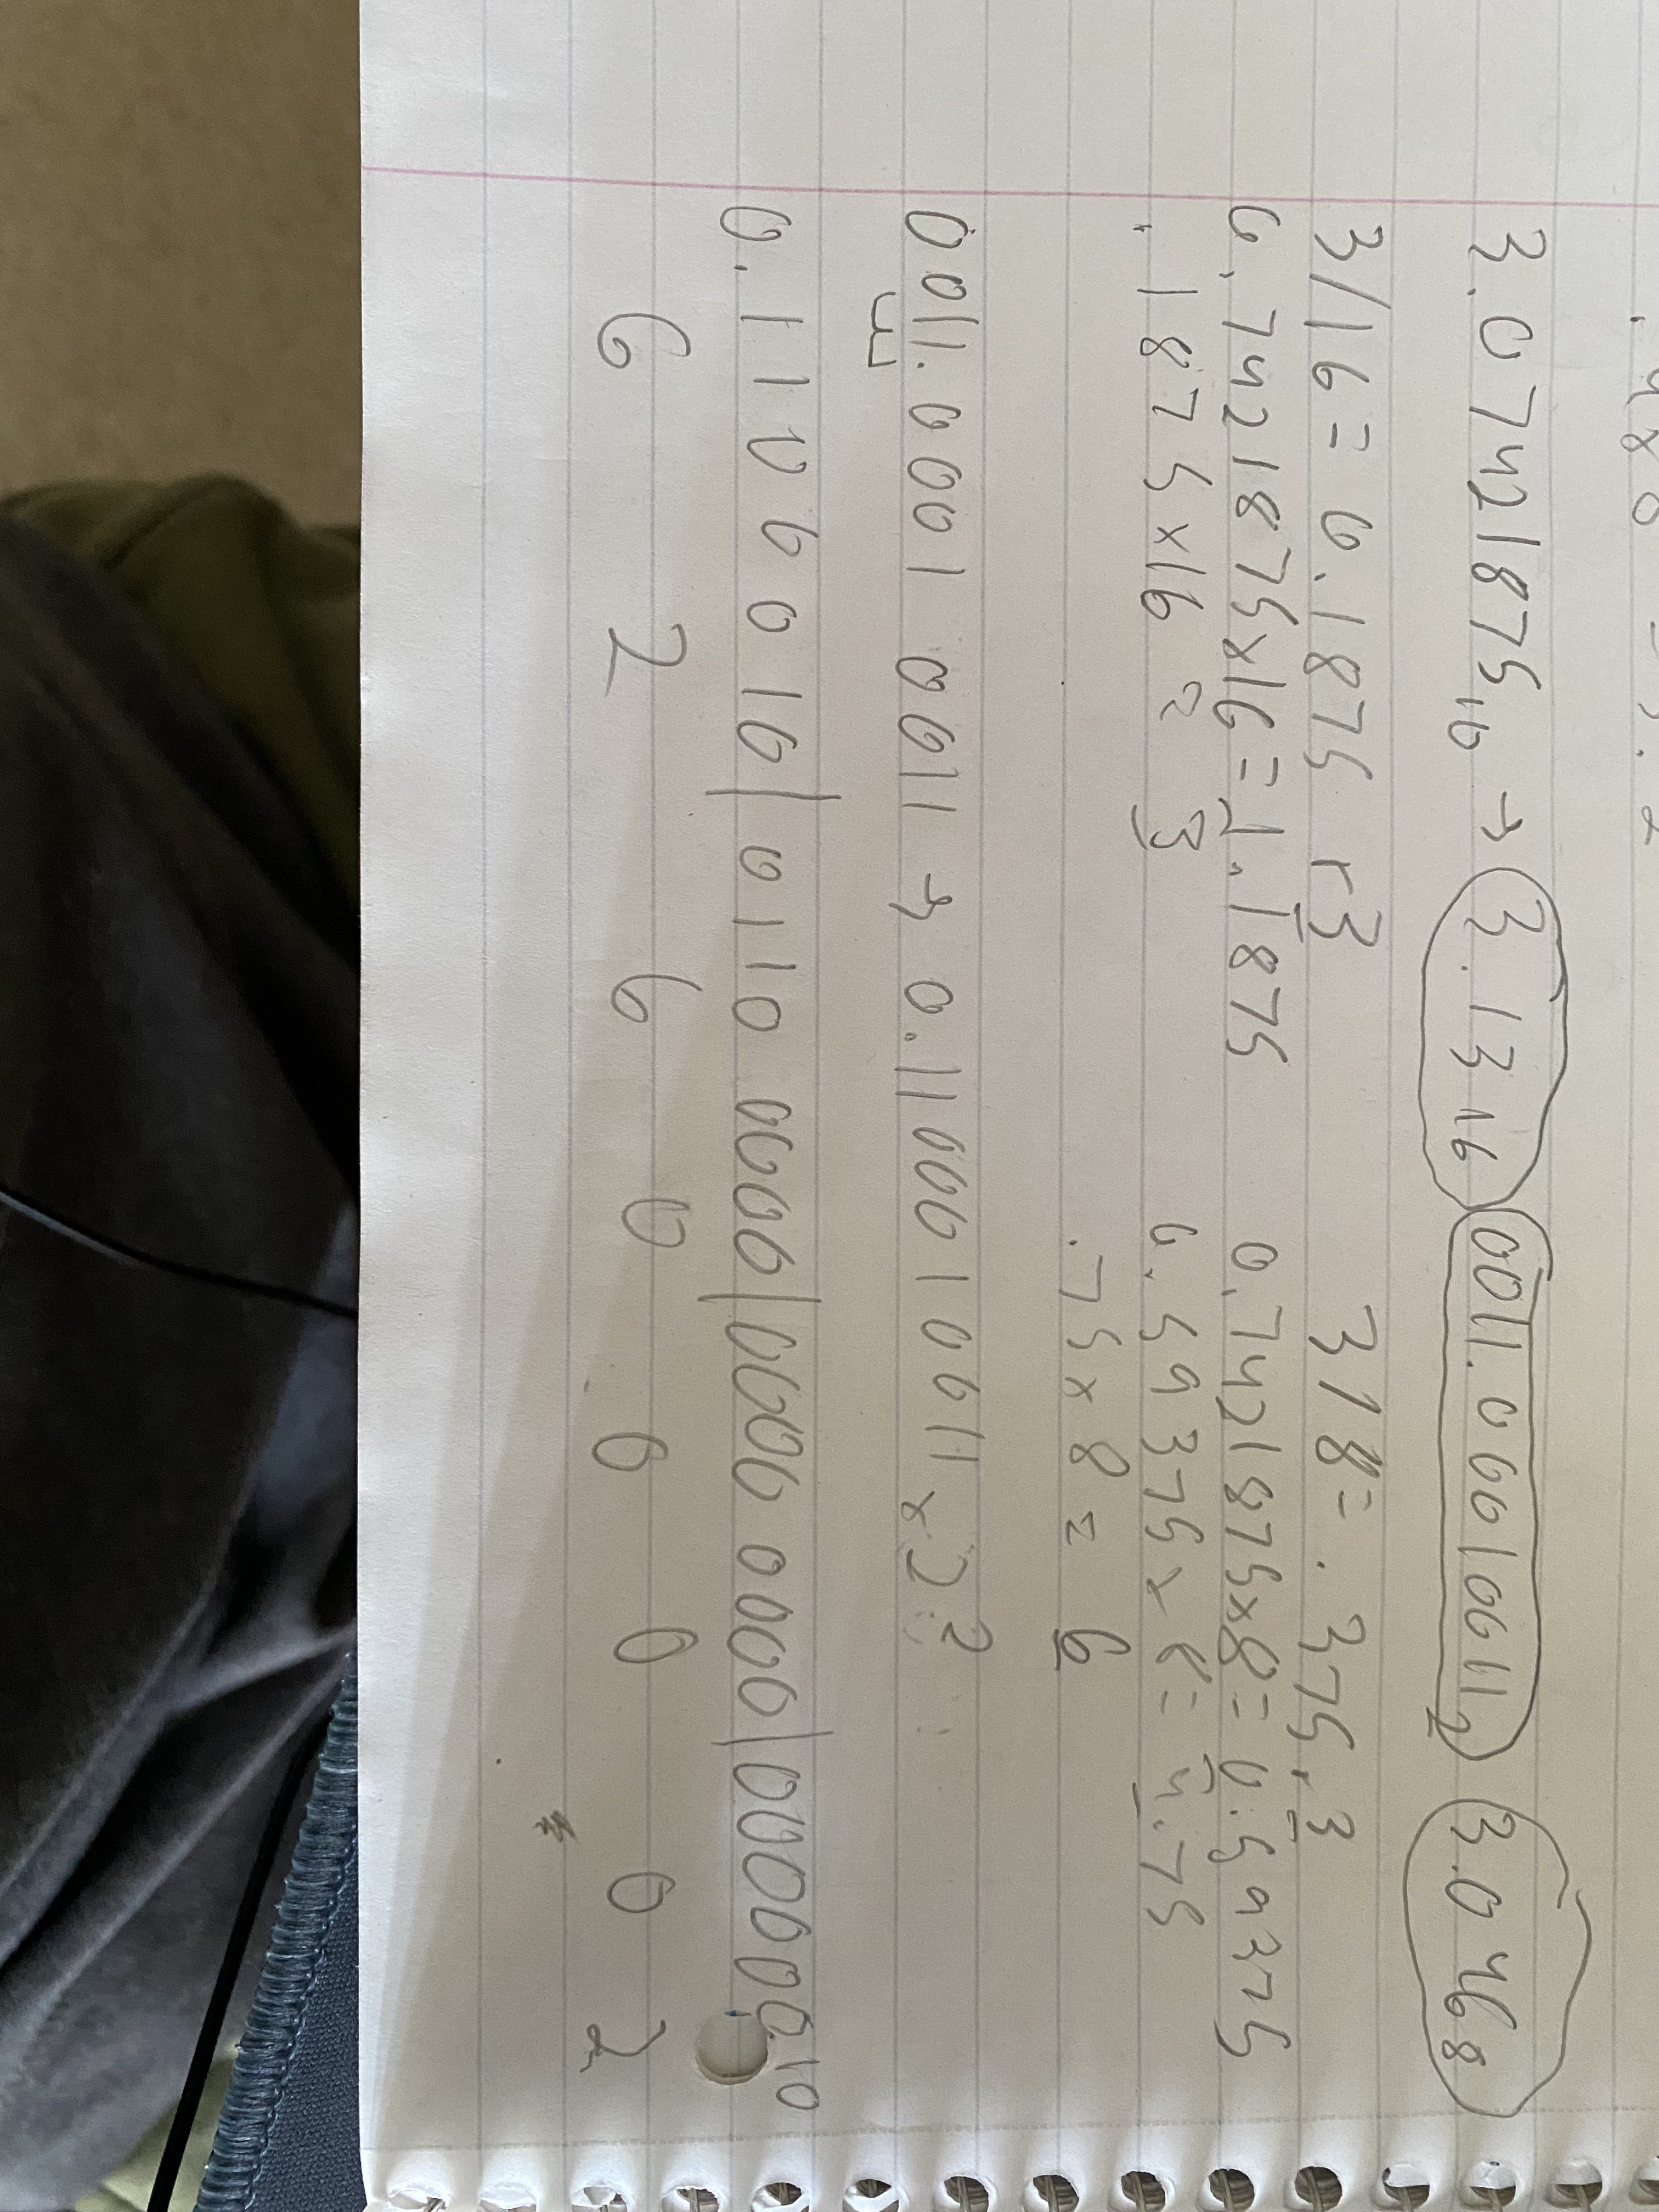 3.07421875₁₀ → 3.13₁₆ 0011.00010011₂ 3.046₈
3/16 = 0.1875 r3 3/8 = .375 r 3
0.7421875x16 = 1.1875 0.7421875x8 = 0.59375
.1875x16 = 3 0.59375x8 = 4.75
.75x8 = 6
0011.0001 0011 → 0.1100010011 x 2²
0.1100010|0110 0000|0000 0000|00000010
6 2 6 0 0 0 0 2